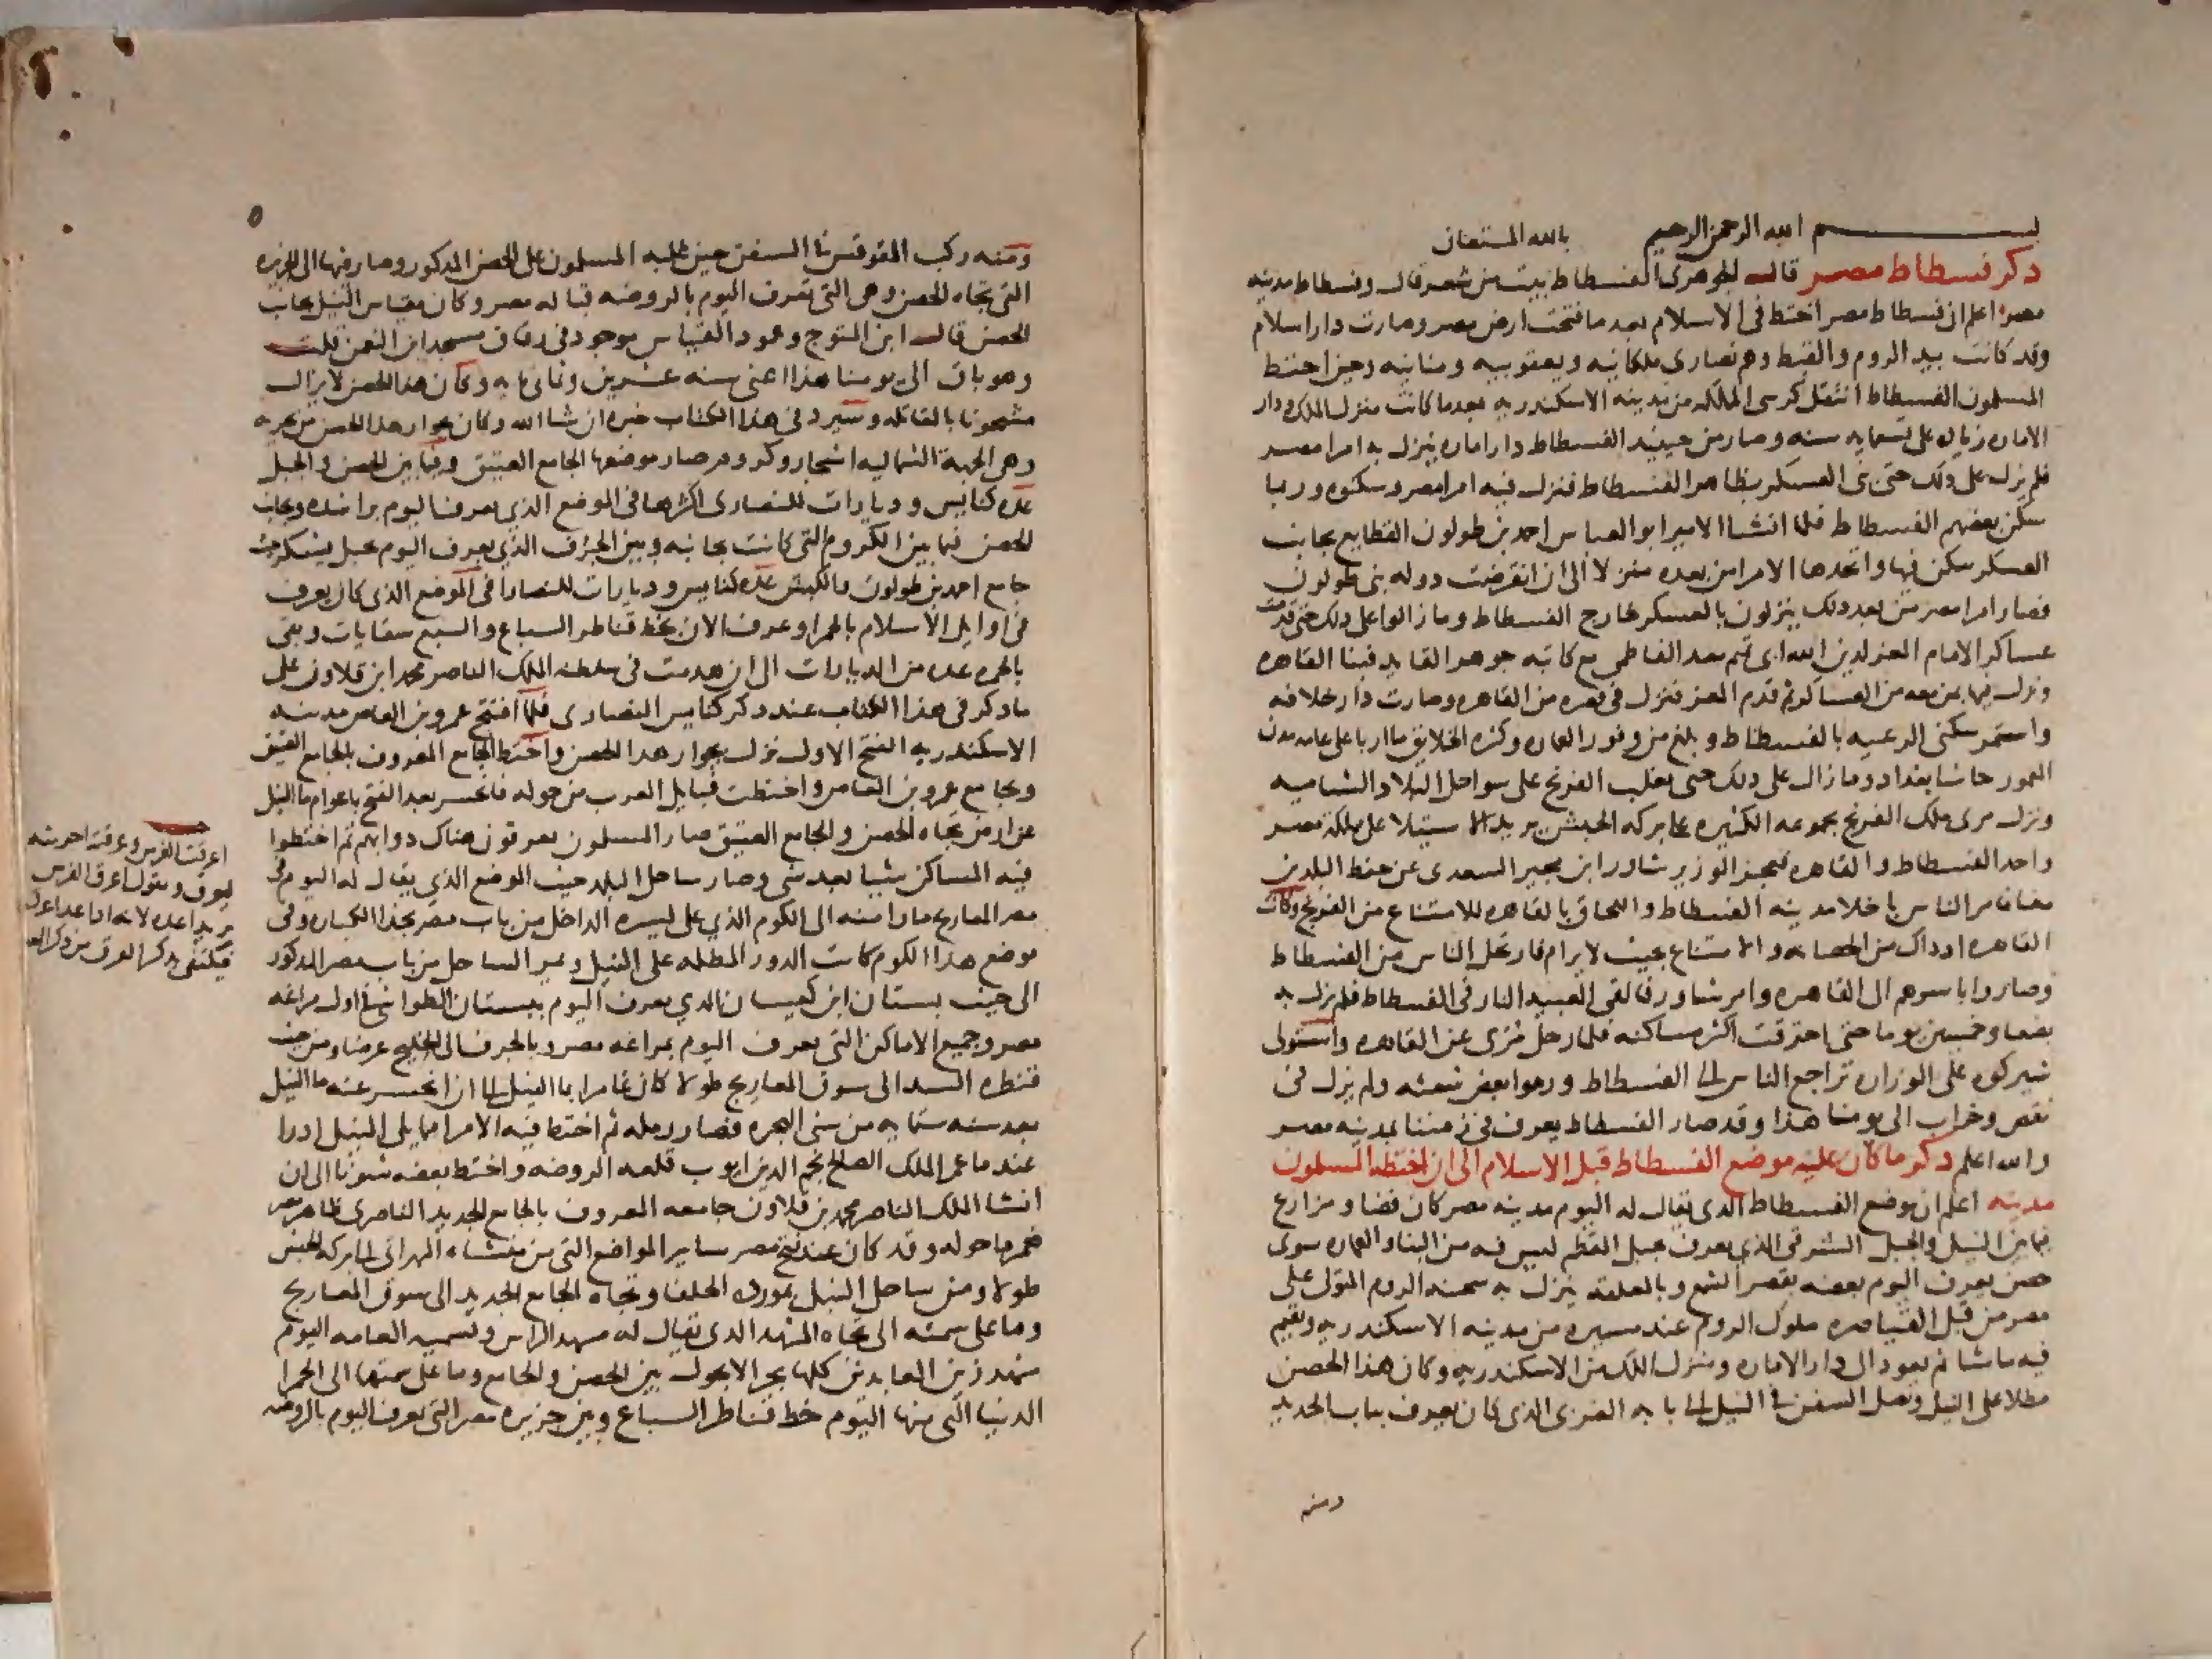 بسم الله الرحمن الرحيم بالله المستعان
ذكر فسطاط مصر قال الجوهرى الفسطاط بيت من شعر قال وفسطاط مدينه
مصر اعلم ان فسطاط مصر اختط فى الاسلام بعد ما فتحت ارض مصر وصارت دار اسلام
وقد كانت بيد الروم والقبط وهم نصارى ملكانيه ويعقوبيه ومنانيه وحين اختط
المسلمون الفسطاط انتقل كرسى المملكه من مدينه الاسكندريه بعد ما كانت منزل الملك ودار
الاماره زياده على تسعمايه سنه وصار من حينيد الفسطاط دار اماره ينزل به امرا مصر
فلم يزل على دلك حتى بنى العسكر بظاهر الفسطاط فنزل فيه امرا مصر وسكنوه وربما
سكن بعضهم الفسطاط فلما انشا الامير ابو العباس احمد بن طولون القطايع بجانب
العسكر سكن فيها واتخدها الامرا من بعده منزلا الى ان انقرضت دوله بنى طولون
فصار امرا مصر من بعد دلك ينزلون بالعسكر خارج الفسطاط وما زالوا على دلك حتى قدمت
عساكر الامام المعز لدين الله ابى تميم معد الفاطمى مع كاتبه جوهر القايد فبنا القاهره
ونزل بها بمن معه من العساكر ثم قدم المعز فنزل فى قصره من القاهره وصارت دار خلافه
واستمر سكنى الرعيه بالفسطاط وبلغ من وفور العماره وكثره الخلايق ما اربا على عامه مدن
المعمور حاشا بغداد وما زال على دلك حتى تغلب الفرنج على سواحل البلاد الشاميه
ونزل مرى ملك الفرنج بجموعه الكثيره على بركه الحبش يريد الاستيلا على مملكة مصر
واخد الفسطاط والقاهره فعجز الوزير شاور ابن مجير السعدى عن حفظ البلدين
معا فامر الناس باخلا مدينه الفسطاط واللحاق بالقاهره للامتناع من الفرنج وكانت
القاهره اد داك من الحصانه والامتناع بحيث لا يرام فارتحل الناس من الفسطاط
وصاروا باسرهم الى القاهره وامر شاور فالقى العبيد النار فى الفسطاط فلم يزل به
بضعا وخمسين يوما حتى احترقت اكثر مساكنه فلما رحل مرى عن القاهره واستولى
شيركوه على الوزاره تراجع الناس الى الفسطاط ورموا بعض شعثه ولم يزل فى
نقص وخراب الى يومنا هذا وقد صار الفسطاط يعرف فى زمننا بمدينه مصر
والله اعلم ذكر ما كان عليه موضع الفسطاط قبل الاسلام الى ان اختطه المسلمون
مدينه اعلم ان موضع الفسطاط الدى يقال له اليوم مدينه مصر كان فضا ومزارع
فيما بين النيل والجبل الشرقى الذى يعرف بجبل المقطم ليس فيه من البنا والعماره سوى
حصن يعرف اليوم بعضه بقصر الشمع وبالمعلقه ينزل به شحنه الروم المتولى على
مصر من قبل القياصره ملوك الروم عند مسيره من مدينه الاسكندريه ويقيم
فيه ما شا ثم يعود الى دار الاماره ومنزل الملك من الاسكندريه وكان هذا الحصن
مطلا على النيل وتصل السفن فى النيل الى بابه الغربى الذى كان يعرف بباب الحديد
ومنه
ه
ومنه ركب المقوقس فى السفن حين غلبه المسلمون على الحصن المدكور وصار فيها الى الجزيره
التى تجاه الحصن وهى التى تعرف اليوم بالروضه قباله مصر وكان مقياس النيل بجانب
الحصن قال ابن المتوج وعمود المقياس موجود فى زقاق مسجد ابن النعمن قلت
وهو باق الى يومنا هذا اعنى سنه عشرين وثمانمايه وكان هدا الحصن لا يزال
مشحونا بالمقاتله وسيرد فى هذا الكتاب خبره ان شا الله وكان بجوار هدا الحصن من بحريه
وهى الجهة الشماليه اشجار وكروم صار موضعها الجامع العتيق وفيما بين الحصن والجبل
عده كنايس وديارات للنصارى اكثرها فى الموضع الذى يعرف اليوم براشده وبجانب
الحصن فيما بين الكروم التى كانت بجانبه وبين الجرف الذى يعرف اليوم بجبل يشكر حيث
جامع احمد بن طولون والكبش عده كنايس وديارات للنصارا فى الموضع الذى كان يعرف
فى اوايل الاسلام بالحمرا وعرف الان بخط قناطر السباع والسبع سقايات وبقى
بالحمره عده من الديارات الى ان هدمت فى سلطنه الملك الناصر محمد ابن قلاون على
ما دكر فى هذا الكتاب عند دكر كنايس النصارى فلما افتتح عمرو بن العاص مدينه
الاسكندريه الفتح الاول نزل بجوار هدا الحصن واختط الجامع المعروف بالجامع العتيق
وبجامع عمرو بن العاص واختطت قبايل العرب من حوله فانحسر بعد الفتح باعوام ما النيل
عن ارض تجاه الحصن والجامع العتيق فصار المسلمون يعرقون هناك دوابهم ثم اختطوا
فيه المساكن شيا بعد شى وصار ساحل البلد حيث الموضع الذى يقال له اليوم فى
مصر المعاريج مارا منه الى الكوم الذى على يسره الداخل من باب مصر بحدا الكباره وفى
موضع هدا الكوم كانت الدور المطله على النيل ويمر الساحل من باب مصر المدكور
الى حيث بستان ابن كيسان الدى يعرف اليوم ببستان الطواشى فى اول مراغه
مصر وجميع الاماكن التى تعرف اليوم بمراغه مصر وبالجرف الى الخليج عرضا ومن حيث
قنطره السد الى سوق المعاريج طولا كان غامرا بما النيل الى ان انحسر عنه ما النيل
بعد سنه ستمايه من سنى الهجره فصار رمله ثم اختط فيه الامرا مما يلى النيل ادرا
عند ما عمر الملك الصالح نجم الدين ايوب قلعه الروضه واختط بعضه شونا الى ان
انشا الملك الناصر محمد بن قلاون جامعه المعروف بالجامع الجديد الناصرى ظاهر مصر
فعمر ما حوله وقد كان عند فتح مصر ساير المواضع التى من منشاه المهرانى الى بركه الحبش
طولا ومن ساحل النيل بمورده الحلفا وتجاه الجامع الجديد الى سوق المعاريج
وما على سمته الى تجاه المشهد الدى يقال له مشهد الراس وتسميه العامه اليوم
مشهد زين العابدين كلها بحرا لا يحول بين الحصن والجامع وما على سمتهما الى الحمرا
الدنيا التى منها اليوم خط قناطر السباع وبين جزيره مصر التى تعرف اليوم بالروضه
اعرقت الفرس وعرقته اجريته
ليعرق ويقول اعرق الفرس